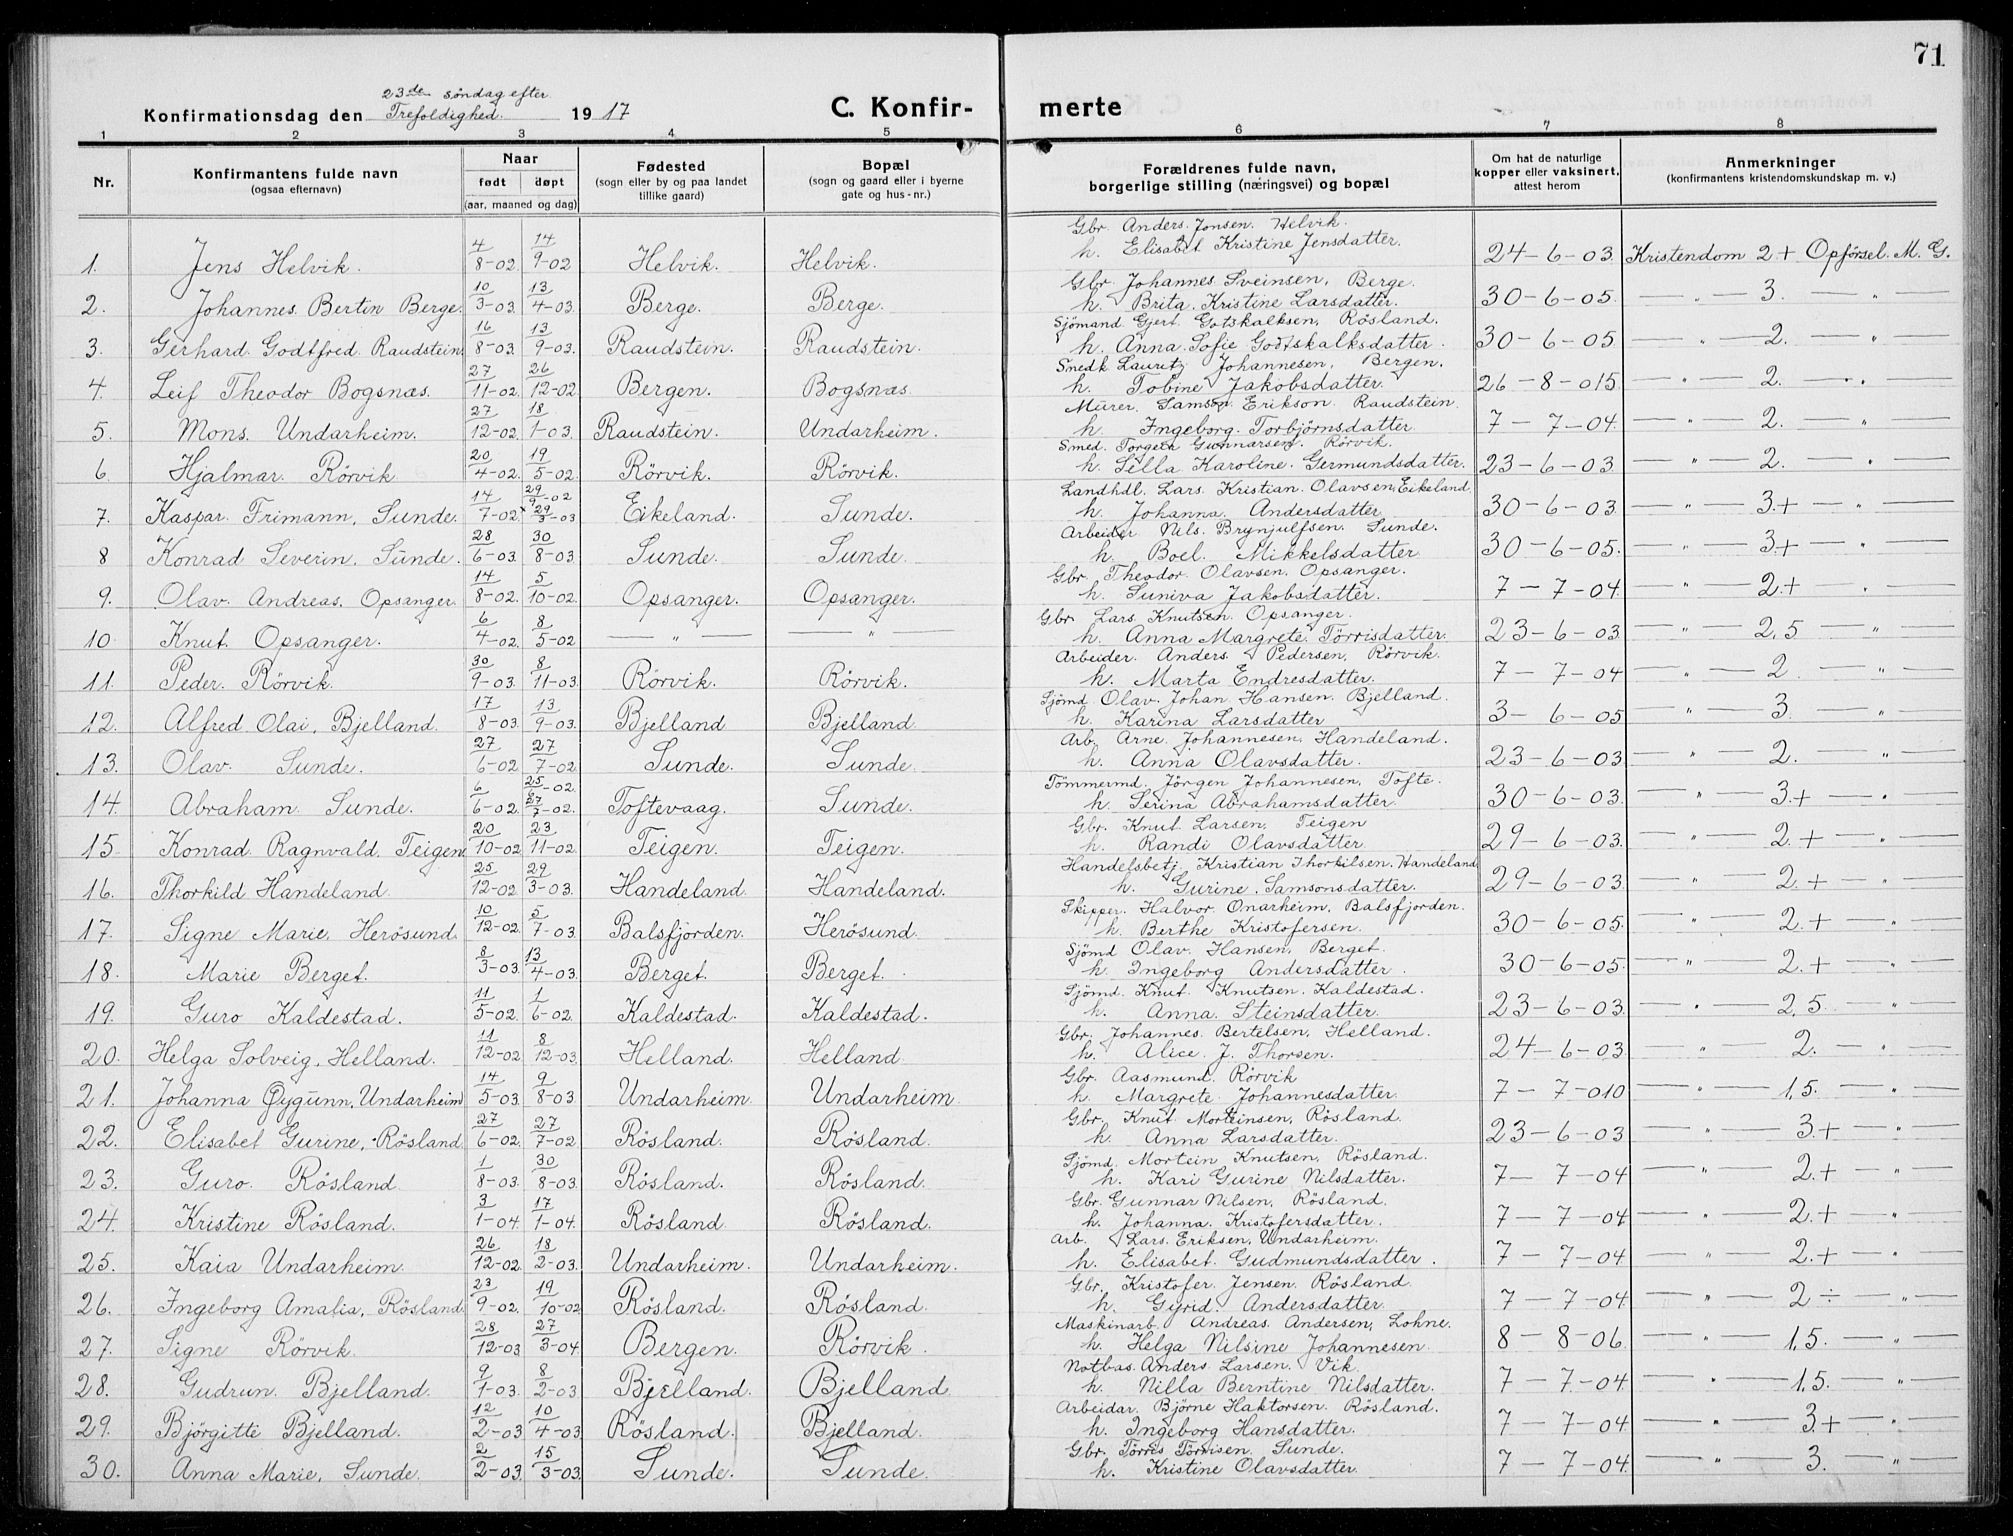 71
23de søndag efter
Konfirmationsdag den Trefoldighed. 1917 C. Konfirmerte
1 2 3 4 5 6 7 8
Nr. Konfirmantens fulde navn (ogsaa efternavn) Naar født døpt (aar, maaned og dag) Fødested (sogn eller by og paa landet tillike gaard) Bopæl (sogn og gaard eller i byerne gate og hus-nr.) Forældrenes fulde navn, borgerlige stilling (næringsvei) og bopæl Om hat de naturlige kopper eller vaksinert, attest herom Anmerkninger (konfirmantens kristendomskundskap m. v.)
Gbr. Anders Jonsen Helvik.
1. Jens Helvik. 4/8-02 14/9-02 Helvik. Helvik. h. Elisabet Kristine Jensdatter. 24-6-03 Kristendom 2+ Opførsel. M. G.
Gbr. Johannes Sveinsen, Berge.
2. Johannes Bertin Berge. 10/3-03 13/4-03 Berge. Berge. h. Brita Kristine Larsdatter. 30-6-05. — " — 3. — " —
Sjömand Gjert Gotskalksen, Rösland.
3. Gerhard Godtfred Raudstein. 16/8-03 13/9-03 Raudstein. Raudstein. h. Anna Sofie Godtskalksdatter. 30-6-05 — " — 2. — " —
Smedk Lauretz Johannesen, Bergen.
4. Leif Theodor Bogsnæs. 27/11-02 26/12-02 Bergen. Bogsnæs h. Tobine Jakobsdatter. 26-8-015 — " — 2. — " —
Murer. Samson Erikson Raudstein.
5. Mons Undarheim. 27/12-02 18/1-03 Raudstein. Undarheim. h. Ingeborg Torbjörnsdatter 7-7-04 — " — 2. — " —
Smed. Torgeir Gunnarsen, Rörvik.
6. Hjalmar Rörvik 20/4-02 19/5-02 Rörvik. Rörvik. h. Silla Karoline Germundsdatter. 23-6-03 — " — 2. — " —
Landhdl. Lars Kristian Olavsen, Eikeland
7. Kaspar Frimann, Sunde. 14/7-02 29/9-02 29/3-03 Eikeland. Sunde. h. Johanna Andersdatter 30-6-03 — " — 3+ — " —
Arbeider Nils Brynjulfsen Sunde.
8 Konrad Severin, Sunde. 28/6-03 30/8-03 Sunde. Sunde. h. Boel Mikkelsdatter 30-6-05. — " — 3+ — " —
Gbr. Theodor Olavsen, Opsanger.
9. Olav Andreas, Opsanger. 14/8-02 5/10-02 Opsanger. Opsanger. h. Suniva Jakobsdatter. 7-7-04 — " — 2+ — " —
Gbr. Lars Knutsen Opsanger.
10 Knut Opsanger. 6/4-02 8/5-02 — " — — " — h. Anna Margrete Törrisdatter 23-6-03 — " — 2,5 — " —
Arbeider Anders Pedersen, Rörvik.
11. Peder Rörvik. 30/9-03 8/11-03 Rörvik. Rörvik. h. Marta Endresdatter. 7-7-04 — " — 2 — " —
Sjömd Olav Johan Hansen, Bjelland.
12. Alfred Olai, Bjelland. 17/8-03 13/9-03 Bjelland Bjelland. h. Karina Larsdatter 3-6-05 — " — 3. — " —
Arb. Arne Johannesen, Handeland.
13. Olav Sunde. 27/6-02 27/7-02 Sunde. Sunde. h. Anna Olavsdatter. 23-6-03 — " — 2. — " —
Tömmermd. Jörgen Johannesen, Tofte.
14. Abraham Sunde. 6/6-02 25/6-02 27/7-02. Toftevaag. Sunde. h. Serina Abrahamsdatter. 30-6-03 — " — 3+ — " —
Gbr. Knut Larsen, Teigen
15 Konrad Ragnvald, Teigen 20/10-02 23/11-02 Teigen. Teigen. h. Randi Olavsdatter 29-6-03 — " — 2+ — " —
Handelsbetj. Kristian Thorkilsen, Handeland
16. Thorkild Handeland. 25/12-02 29/3-03. Handeland Handeland. h. Gurine Samsonsdatter. 29-6-03 — " — 2+ — " —
Skipper. Halvor Onarheim, Balsfjorden.
17. Signe Marie, Herösund. 10/12-02 5/7-03. Balsfjorden. Herösund. h. Berthe Kristofersen. 30-6-05 — " — 2+ — " —
Sjömd Olav Hansen, Berget
18. Marie Berget. 8/3-03 13/4-03. Berget. Berget. h. Ingeborg Andersdatter. 30-6-05 — " — 2+ — " —
Sjömd. Knut Knutsen Kaldestad.
19. Guro Kaldestad. 11/5-02 1/6-02. Kaldestad. Kaldestad. h. Anna Steinsdatter. 23-6-03 — " — 2,5. — " —
Gbr. Johannes Bertelsen, Helland.
20. Helga Solveig, Helland. 11/12-02 8/12-03. Helland. Helland h. Alice J. Thorsen. 24-6-03 — " — 2. — " —
Gbr. Aasmund Rörvik
21. Johanna Öygunn, Undarheim 14/5-03 9/8-03 Undarheim Undarheim. h. Margrete Johannesdatter 7-7-010 — " — 1,5. — " —
Gbr. Knut Morteinsen, Rösland.
22. Elisabet Gurine, Rösland. 27/6-02 27/7-02 Rösland. Rösland. h. Anna Larsdatter. 23-6-03 — " — 3+ — " —
Sjömd. Mortein Knutsen, Rösland.
23. Guro Rösland 1/8-03 30/8-03. Rösland. Rösland. h. Kari Gurine Nilsdatter. 7-7-04 — " — 2+ — " —
Gbr. Gunnar Nilsen, Rösland.
24. Kristine Rösland. 3/1-04 17/1-04. Rösland Rösland. h. Johanna Kristofersdatter. 7-7-04 — " — 2+ — " —
Arb. Lars Eriksen, Undarheim.
25. Kaia Undarheim 26/12-02 18/2-03. Undarheim. Undarheim. h. Elisabet Gudmundsdatter. 7-7-04 — " — 2+ — " —
Gbr. Kristofer Jensen Rösland.
26. Ingeborg Amalia, Rösland. 23/9-02 19/10-02 Rösland. Rösland. h. Gyrid Andersdatter 7-7-04 — " — 2÷ — " —
Maskinarb. Andreas Andersen, Lohne.
27. Signe Rörvik. 28/12-03 27/3-04 Bergen. Rörvik. h. Helga Nilsine Johannesen. 8-8-06 — " — 1,5. — " —
Notbas Anders Larsen, Vik.
28. Gudrun Bjelland. 9/1-03 8/2-03 Bjelland. Bjelland h. Nilla Berntine Nilsdatter. 7-7-04 — " — 1,5. — " —
Arbeidar Björne Haktorsen, Rösland.
29. Björgitte Bjelland. 12/2-03 10/4-03 Rösland. Bjelland. h. Ingeborg Hansdatter. 7-7-04 — " — 3+ — " —
Gbr. Törres Törrisen Sunde.
30. Anna Marie, Sunde. 2/2-03 15/3-03 Sunde. Sunde. h. Kristine Olavsdatter. 7-7-04 — " — 3. — " —